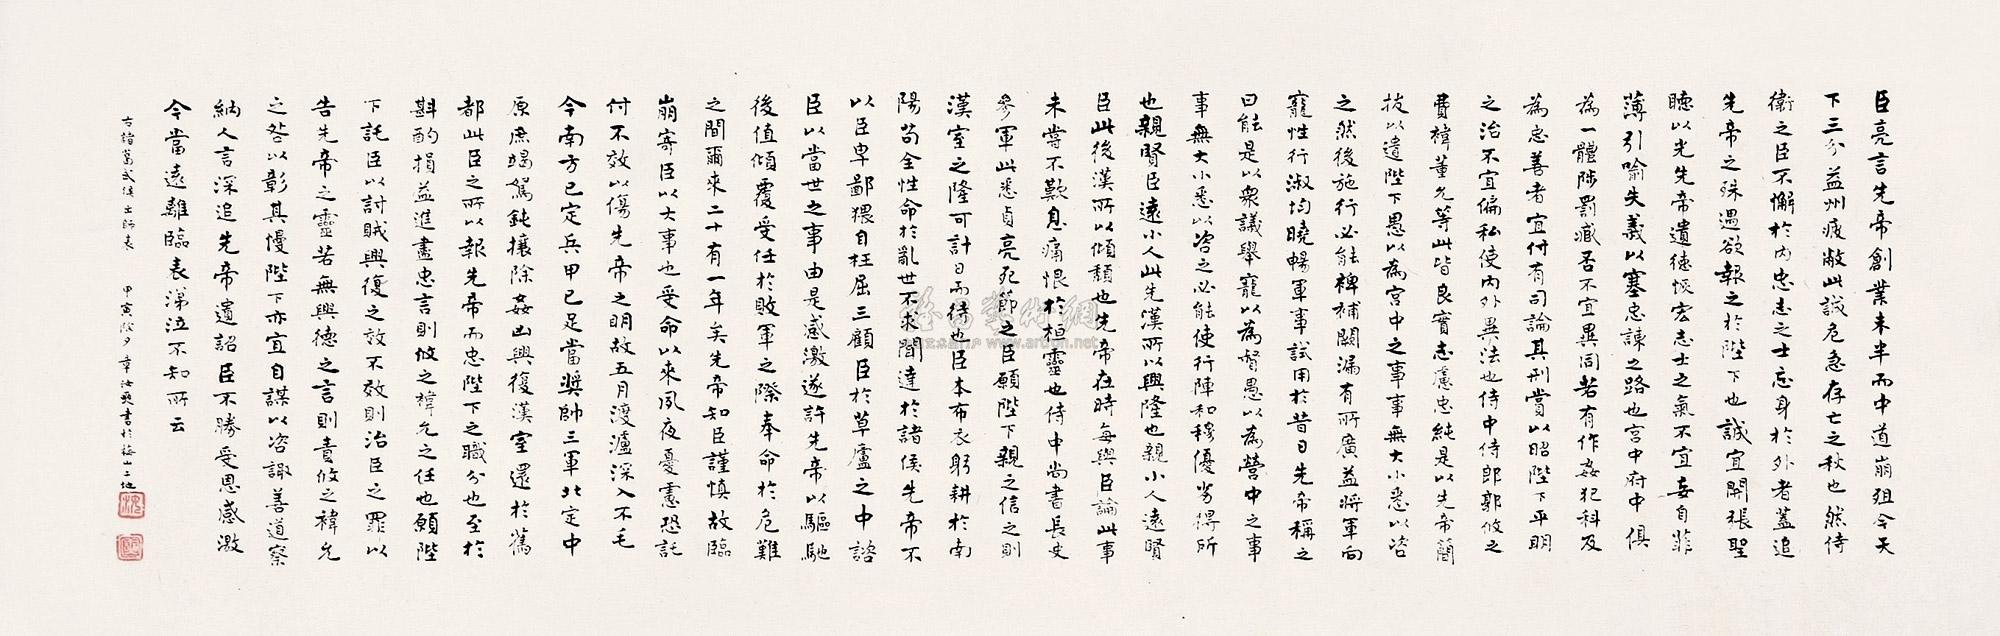 臣亮言先帝創業未半而中道崩殂今天
下三分益州疲敝此誠危急存亡之秋也然侍
衛之臣不懈於內忠志之士忘身於外者蓋追
先帝之殊遇欲報之於陛下也誠宜開張聖
聽以光先帝遺德恢宏志士之氣不宜妄自菲
薄引喻失義以塞忠諫之路也宮中府中俱
為一體陟罰臧否不宜異同若有作姦犯科及
為忠善者宜付有司論其刑賞以昭陛下平明
之治不宜偏私使內外異法也侍中侍郎郭攸之
費禕董允等此皆良實志慮忠純是以先帝簡
拔以遺陛下愚以為宮中之事事無大小悉以咨
之然後施行必能裨補闕漏有所廣益將軍向
寵性行淑均曉暢軍事試用於昔日先帝稱之
曰能是以眾議舉寵以為督愚以為營中之事
事無大小悉以咨之必能使行陣和穆優劣得所
也親賢臣遠小人此先漢所以興隆也親小人遠賢
臣此後漢所以傾頹也先帝在時每與臣論此事
未嘗不歎息痛恨於桓靈也侍中尚書長史
參軍此悉貞亮死節之臣願陛下親之信之則
漢室之隆可計日而待也臣本布衣躬耕於南
陽苟全性命於亂世不求聞達於諸侯先帝不
以臣卑鄙猥自枉屈三顧臣於草廬之中諮
臣以當世之事由是感激遂許先帝以驅馳
後值傾覆受任於敗軍之際奉命於危難
之間爾來二十有一年矣先帝知臣謹慎故臨
崩寄臣以大事也受命以來夙夜憂慮恐託
付不效以傷先帝之明故五月渡瀘深入不毛
今南方已定兵甲已足當奬帥三軍北定中
原庶竭駑鈍攘除姦凶興復漢室還於舊
都此臣之所以報先帝而忠陛下之職分也至於
斟酌損益進盡忠言則攸之禕允之任也願陛
下託臣以討賊興復之效不效則治臣之罪以
告先帝之靈若無興德之言則責攸之禕允
之咎以彰其慢陛下亦宜自謀以咨諏善道察
納人言深追先帝遺詔臣不勝受恩感激
今當遠離臨表涕泣不知所云
右諸葛武侯出師表 甲寅除夕 章汝奭書於梅山
www.artron.net